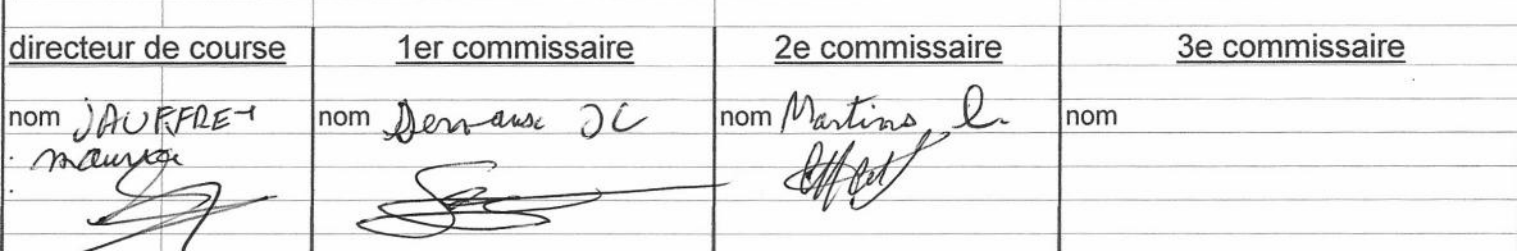 directeur de course 1er commissaire 2e commissaire 3e commissaire
nom JAUFFRET nom JC nom Martins nom